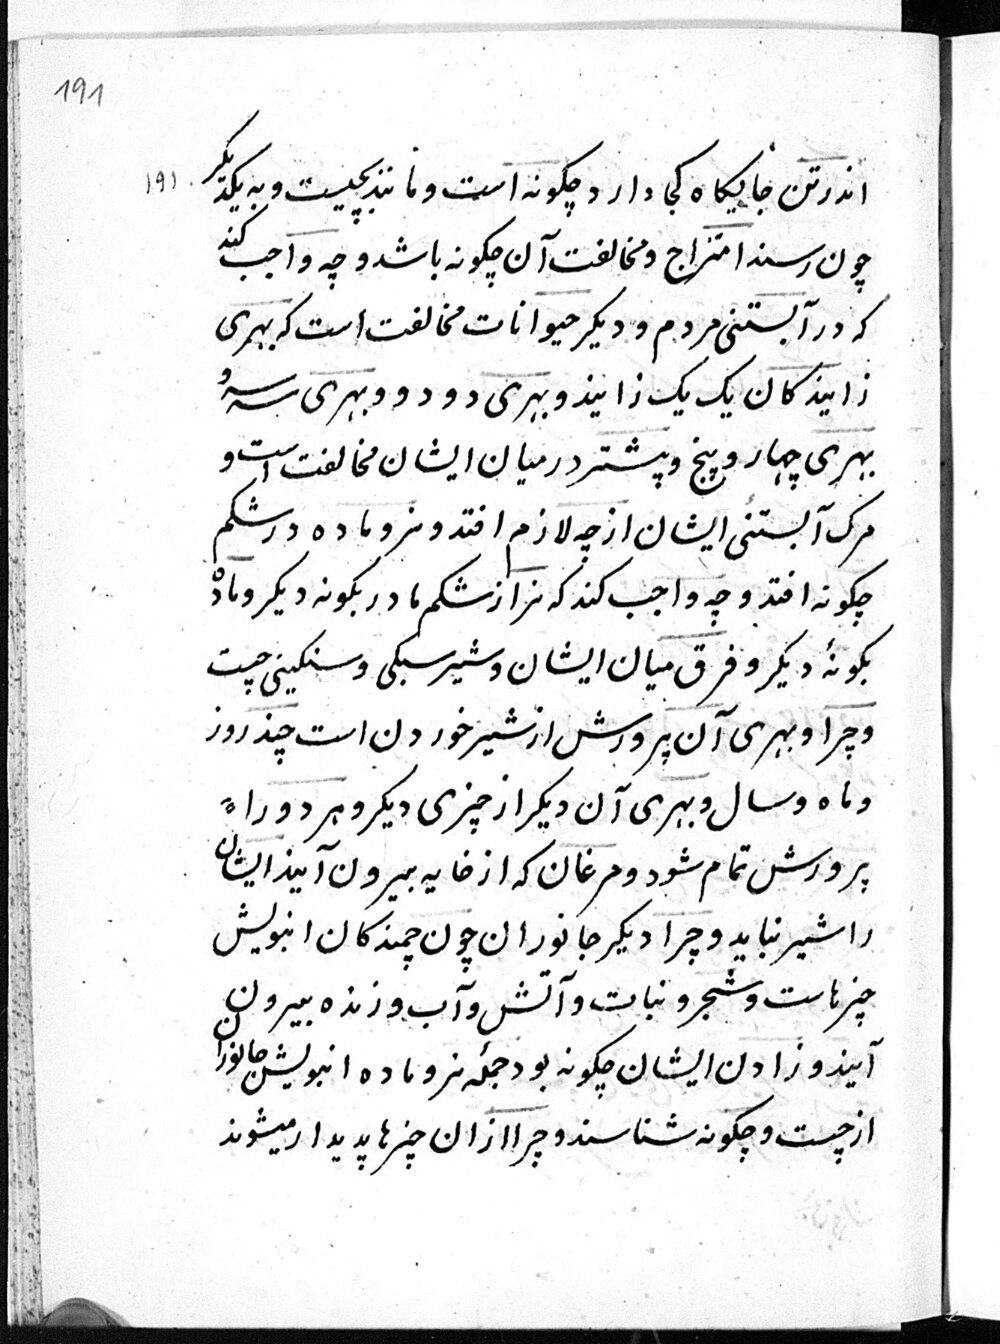 191
۱۹۱
اندرتن جایکاه کجا دارد چکونه است و مانند بچیست و به یکدیکر
چون رسند امتزاج و مخالفت آن چکونه باشد و چه واجب کند
که در آبستنی مردم و دیکر حیوانات مخالفت است که بهری
زایند کان یک یک زایند و بهری دو دو و بهری سه سه و
بهری چهار و پنج و پیشتر در میان ایشان مخالفت است و
مرک آبستنی ایشان از چه لازم افتد و نر و ماده در شکم
چکونه افتد و چه واجب کند که نر از شکم مادر بکونه دیکر و ماده
بکونهٔ دیکر و فرق میان ایشان و شیر سبکی و سنکینی چیست
و چرا و بهری آن پرورش از شیر خوردن است چند روز
و ماه و سال و بهری آن دیکر از چیزی دیکر و هر دو را
پرورش تمام شود و مرغان که از خایه بیرون آیند ایشان
را شیر نباید و چرا دیکر جانوران چون چمندکان انبویش
چیزهاست و شجر و نبات و آتش و آب و زنده بیرون
آیند و زادن ایشان چکونه بود جمله نر و ماده انبویش جانوران
از چیست و چکونه شناسند و چرا ازان چیزها پدیدار میشوند